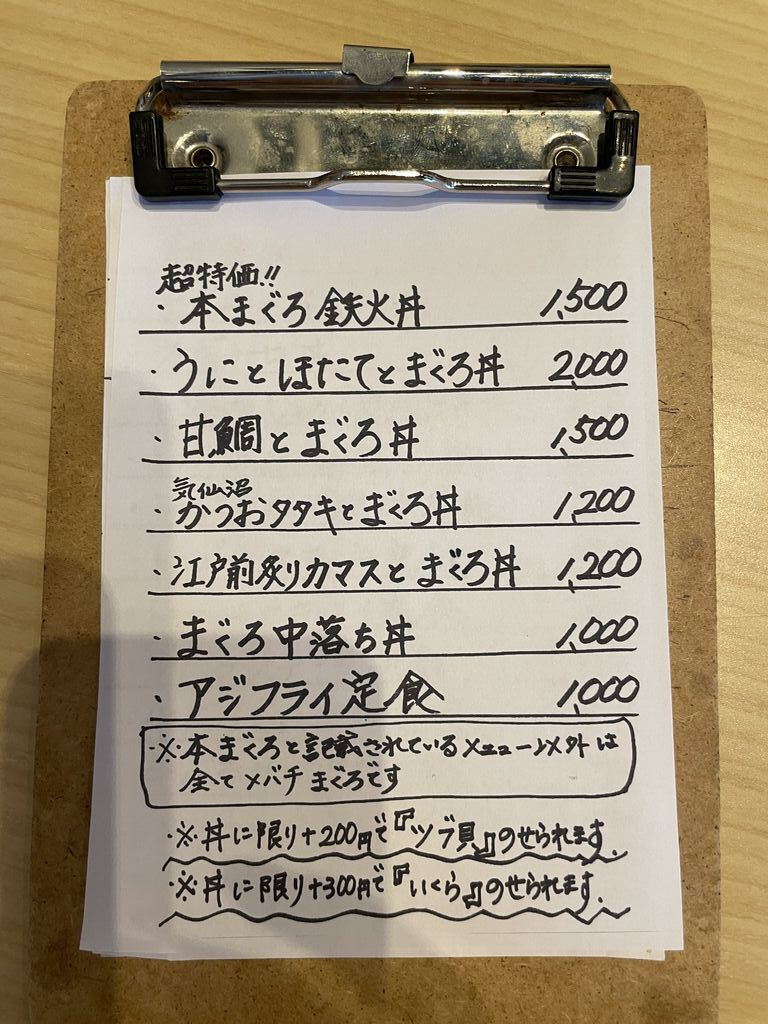 超特価!!
・本まぐろ鉄火丼 1,500
・うにとほたてとまぐろ丼 2,000
・甘鯛とまぐろ丼 1,500
気仙沼
・かつおタタキとまぐろ丼 1,200
・江戸前炙りカマスとまぐろ丼 1,200
・まぐろ中落ち丼 1,000
・アジフライ定食 1,000
・※本まぐろと記載されているメニュー以外は
全てメバチまぐろです
・※丼に限り+200円で『ツブ貝』のせられます.
・※丼に限り+300円で『いくら』のせられます.